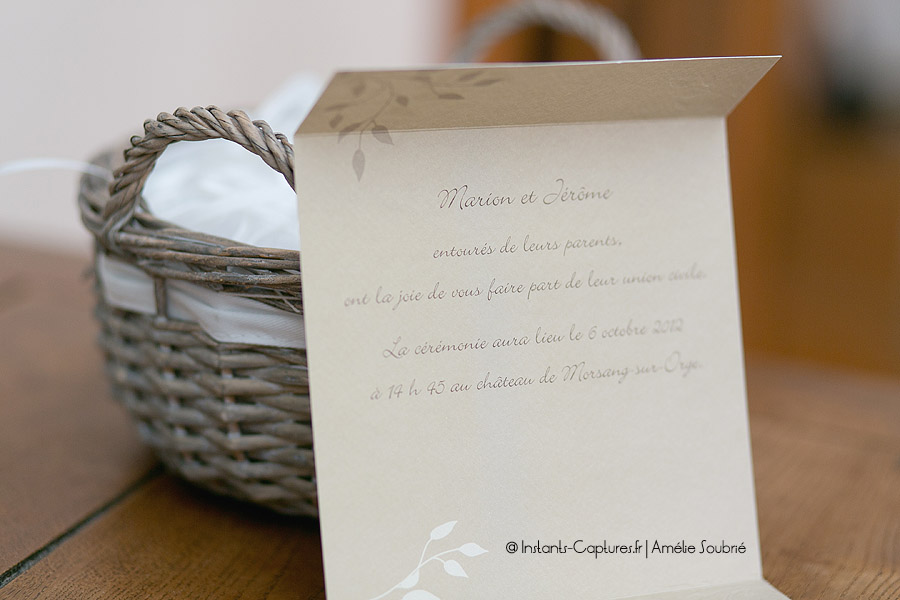 Marion et Jérôme
entourés de leurs parents,
ont la joie de vous faire part de leur union civile.
La cérémonie aura lieu le 6 octobre 2012
à 14 h 45 au château de Morsang-sur-Orge.
@ Instants-Captures.fr | Amélie Soubrié